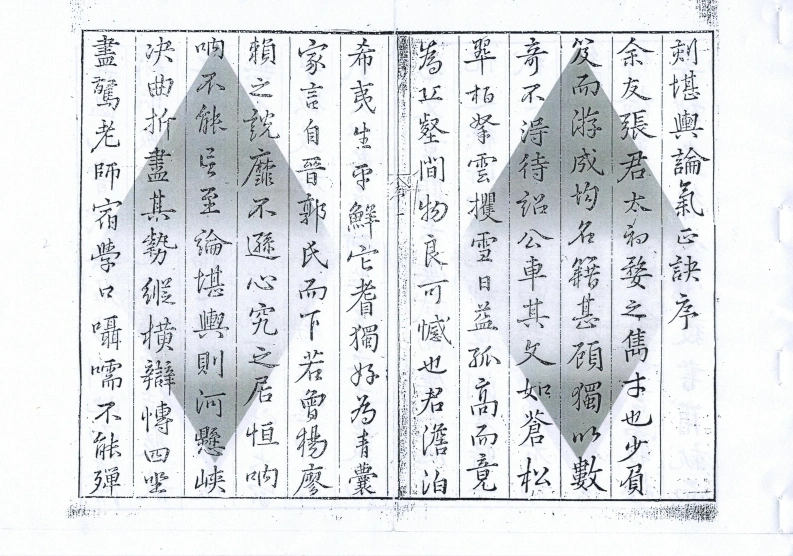 刻堪輿論氣正訣序
余友張君太初婺之雋才也少負
笈而游成均名籍甚顧獨以數
奇不得待詔公車其文如蒼松
翠柏拏雲攫雪日益孤高而竟
為丘壑間物良可憾也君澹泊
希夷生平鮮它耆獨好為青囊
家言自晉郭氏而下若曾楊廖
賴之說靡不遜心究之居恒吶
吶不能言至論堪輿則河懸峽
決曲折盡其勢縱橫辯博四坐
盡驚老師宿學口囁嚅不能殫